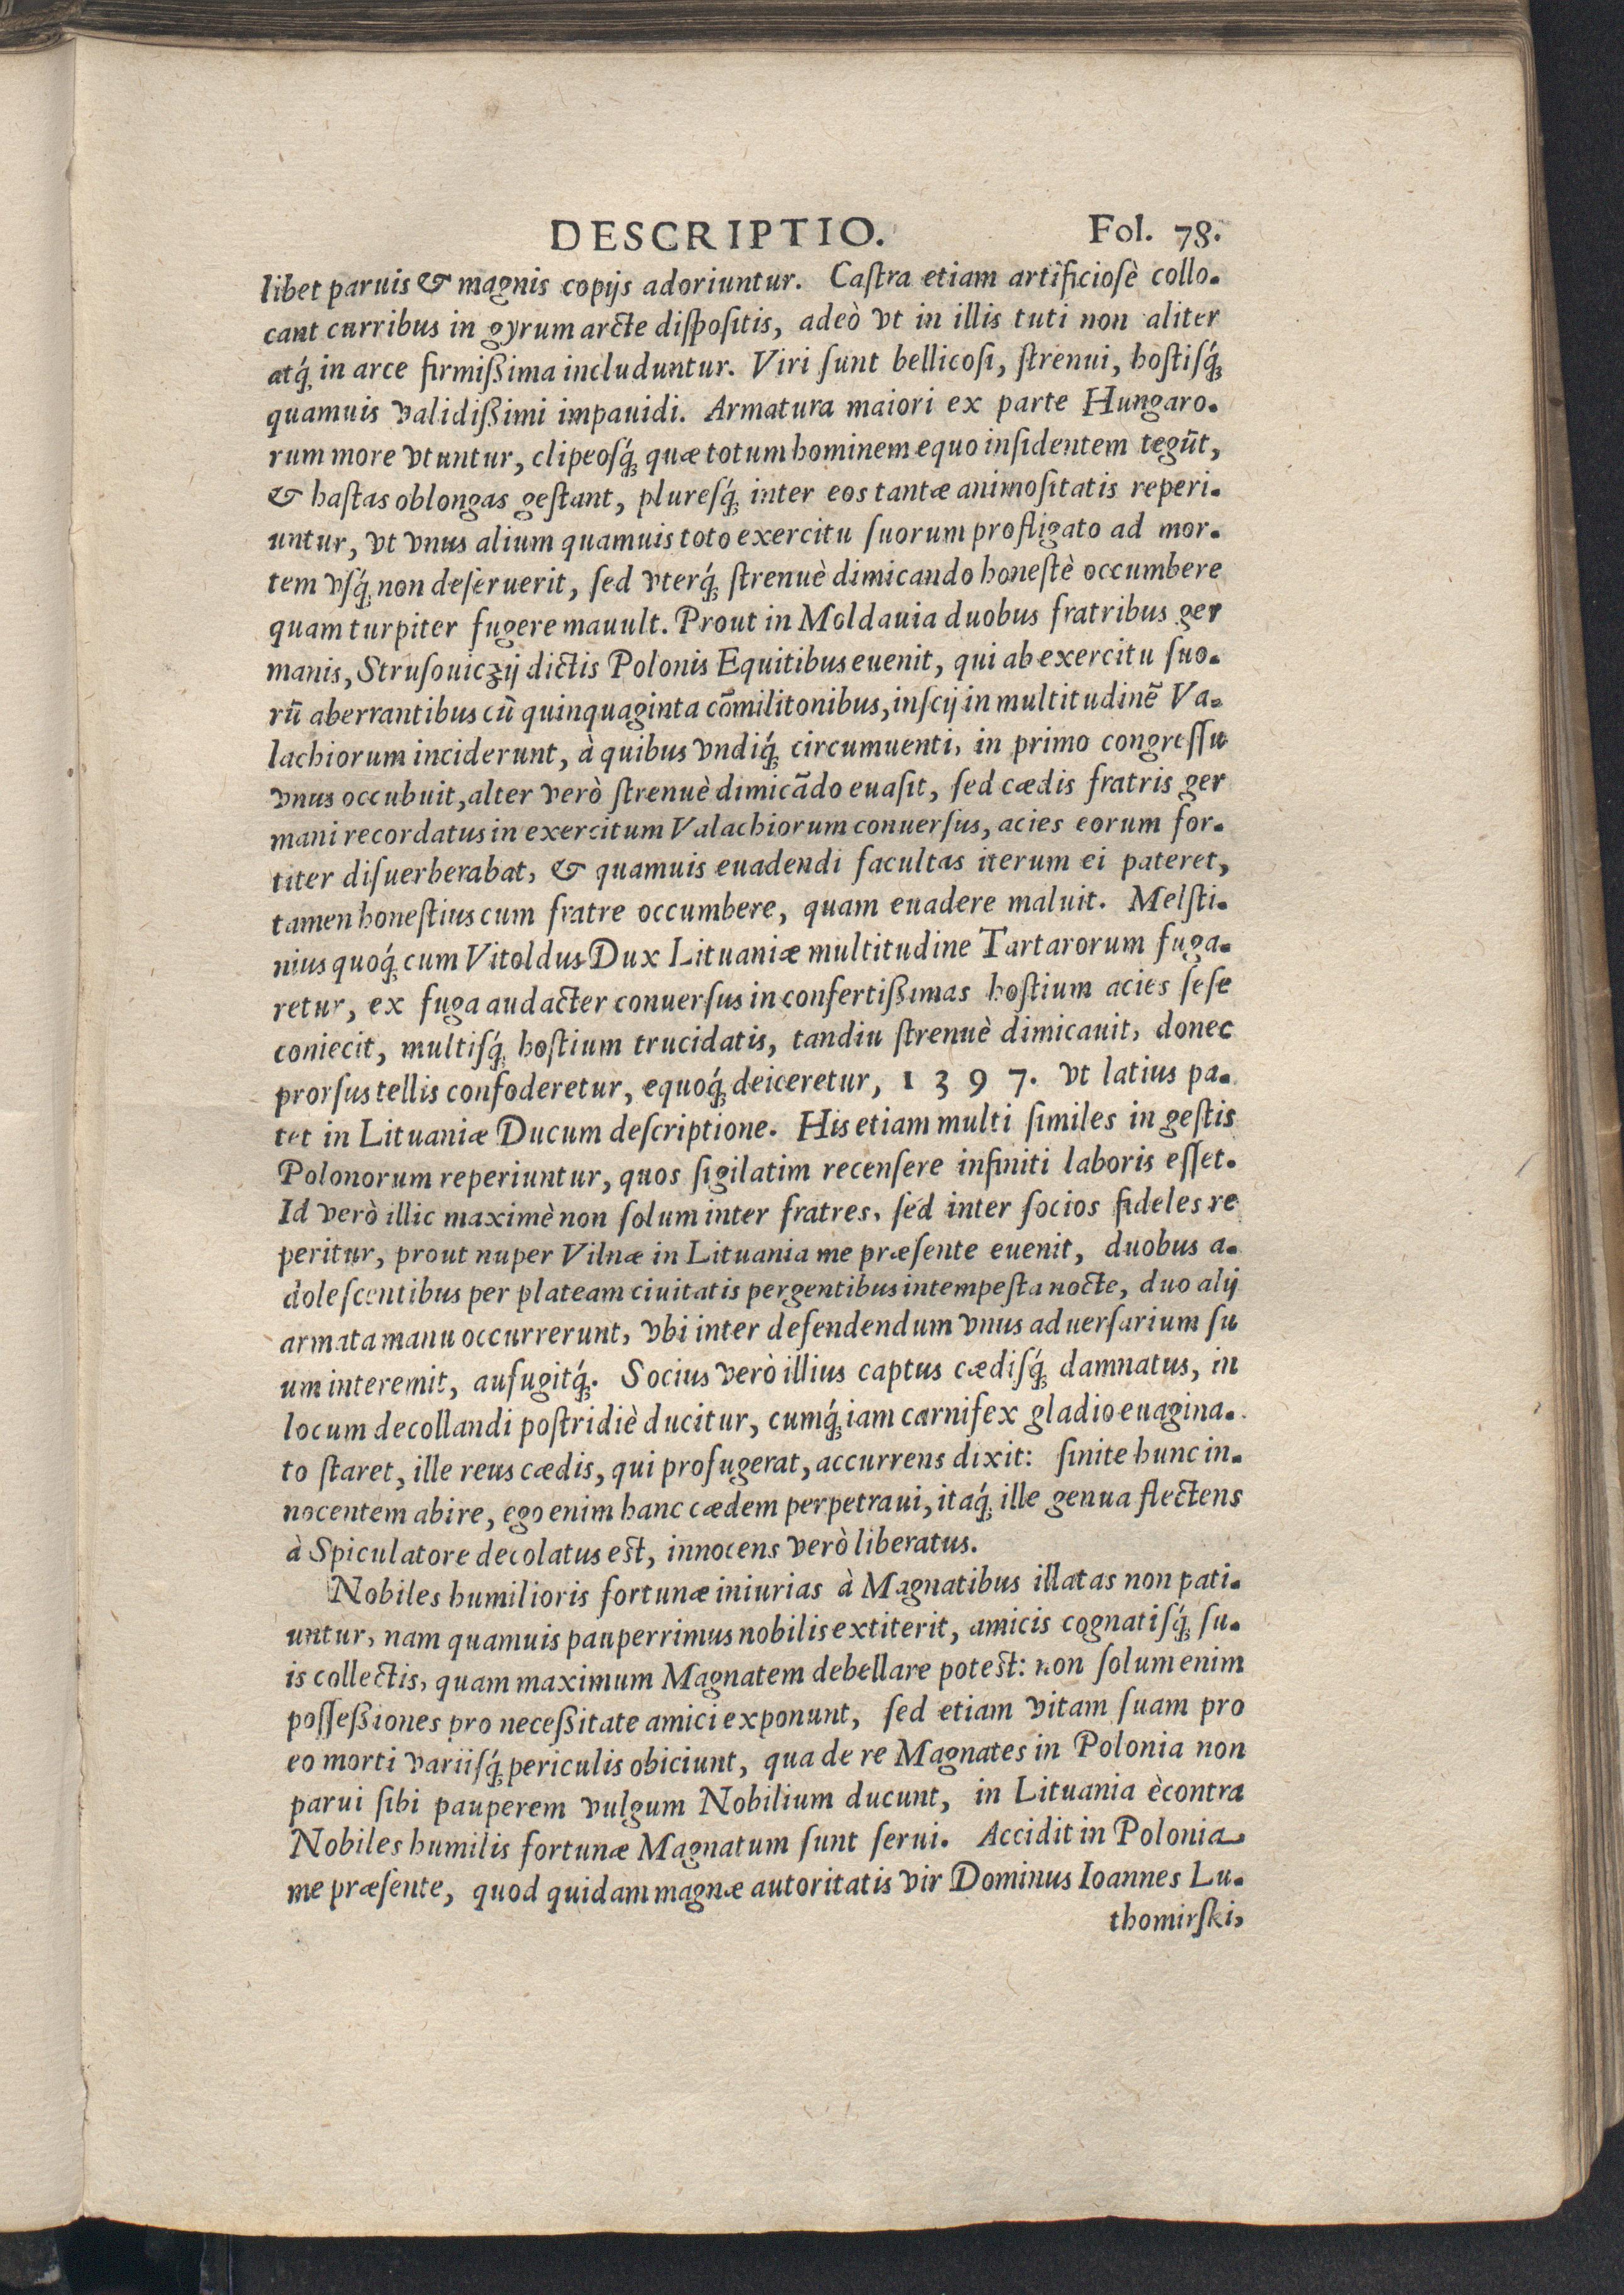 DESCRIPTIO. Fol. 78.
libet paruis & magnis copijs adoriuntur. Caſtra etiam artificioſè collo-
cant curribus in gyrum arcte diſpoſitis, adeò vt in illis tuti non aliter
atq́; in arce firmißima includuntur. Viri ſunt bellicoſi, ſtrenui, hoſtiſq́;
quamuis validißimi impauidi. Armatura maiori ex parte Hungaro-
rum more vtuntur, clipeoſq́; quæ totum hominem equo inſidentem tegūt,
& haſtas oblongas geſtant, plureſq́; inter eos tantæ animoſitatis reperi-
untur, vt vnus alium quamuis toto exercitu ſuorum profligato ad mor-
tem vſq́; non deſeruerit, ſed vterq́; ſtrenuè dimicando honeſtè occumbere
quam turpiter fugere mauult. Prout in Moldauia duobus fratribus ger
manis, Struſouiczij dictis Polonis Equitibus euenit, qui ab exercitu ſuo-
rū aberrantibus cū quinquaginta cōmilitonibus, inſcij in multitudinē Va-
lachiorum inciderunt, à quibus vndiq́; circumuenti, in primo congreſſu
vnus occubuit, alter verò ſtrenuè dimicādo euaſit, ſed cædis fratris ger
mani recordatus in exercitum Valachiorum conuerſus, acies eorum for-
titer diſuerberabat, & quamuis euadendi facultas iterum ei pateret,
tamen honeſtius cum fratre occumbere, quam euadere maluit. Melſti-
nius quoq́; cum Vitoldus Dux Lituaniæ multitudine Tartarorum fuga-
retur, ex fuga audacter conuerſus in confertißimas hoſtium acies ſeſe
coniecit, multiſq́; hoſtium trucidatis, tandiu ſtrenuè dimicauit, donec
prorſus tellis confoderetur, equoq́; deiceretur, 1 3 9 7. vt latius pa-
tet in Lituaniæ Ducum deſcriptione. His etiam multi ſimiles in geſtis
Polonorum reperiuntur, quos ſigilatim recenſere infiniti laboris eſſet.
Id verò illic maximè non ſolum inter fratres, ſed inter ſocios fideles re
peritur, prout nuper Vilnæ in Lituania me præſente euenit, duobus a-
doleſcentibus per plateam ciuitatis pergentibus intempeſta nocte, duo alij
armata manu occurrerunt, vbi inter defendendum vnus aduerſarium ſu
um interemit, aufugitq́;. Socius verò illius captus cædiſq́; damnatus, in
locum decollandi poſtridiè ducitur, cumq́; iam carnifex gladio euagina-
to ſtaret, ille reus cædis, qui profugerat, accurrens dixit: ſinite hunc in-
nocentem abire, ego enim hanc cædem perpetraui, itaq́; ille genua flectens
à Spiculatore decolatus est, innocens verò liberatus.
Nobiles humilioris fortunæ iniurias à Magnatibus illatas non pati-
untur, nam quamuis pauperrimus nobilis extiterit, amicis cognatiſq́; ſu-
is collectis, quam maximum Magnatem debellare potest: non ſolum enim
poſſeßiones pro neceßitate amici exponunt, ſed etiam vitam ſuam pro
eo morti variiſq́; periculis obiciunt, qua de re Magnates in Polonia non
parui ſibi pauperem vulgum Nobilium ducunt, in Lituania ècontra
Nobiles humilis fortunæ Magnatum ſunt ſerui. Accidit in Polonia
me præſente, quod quidam magnæ autoritatis vir Dominus Ioannes Lu-
thomirſki,